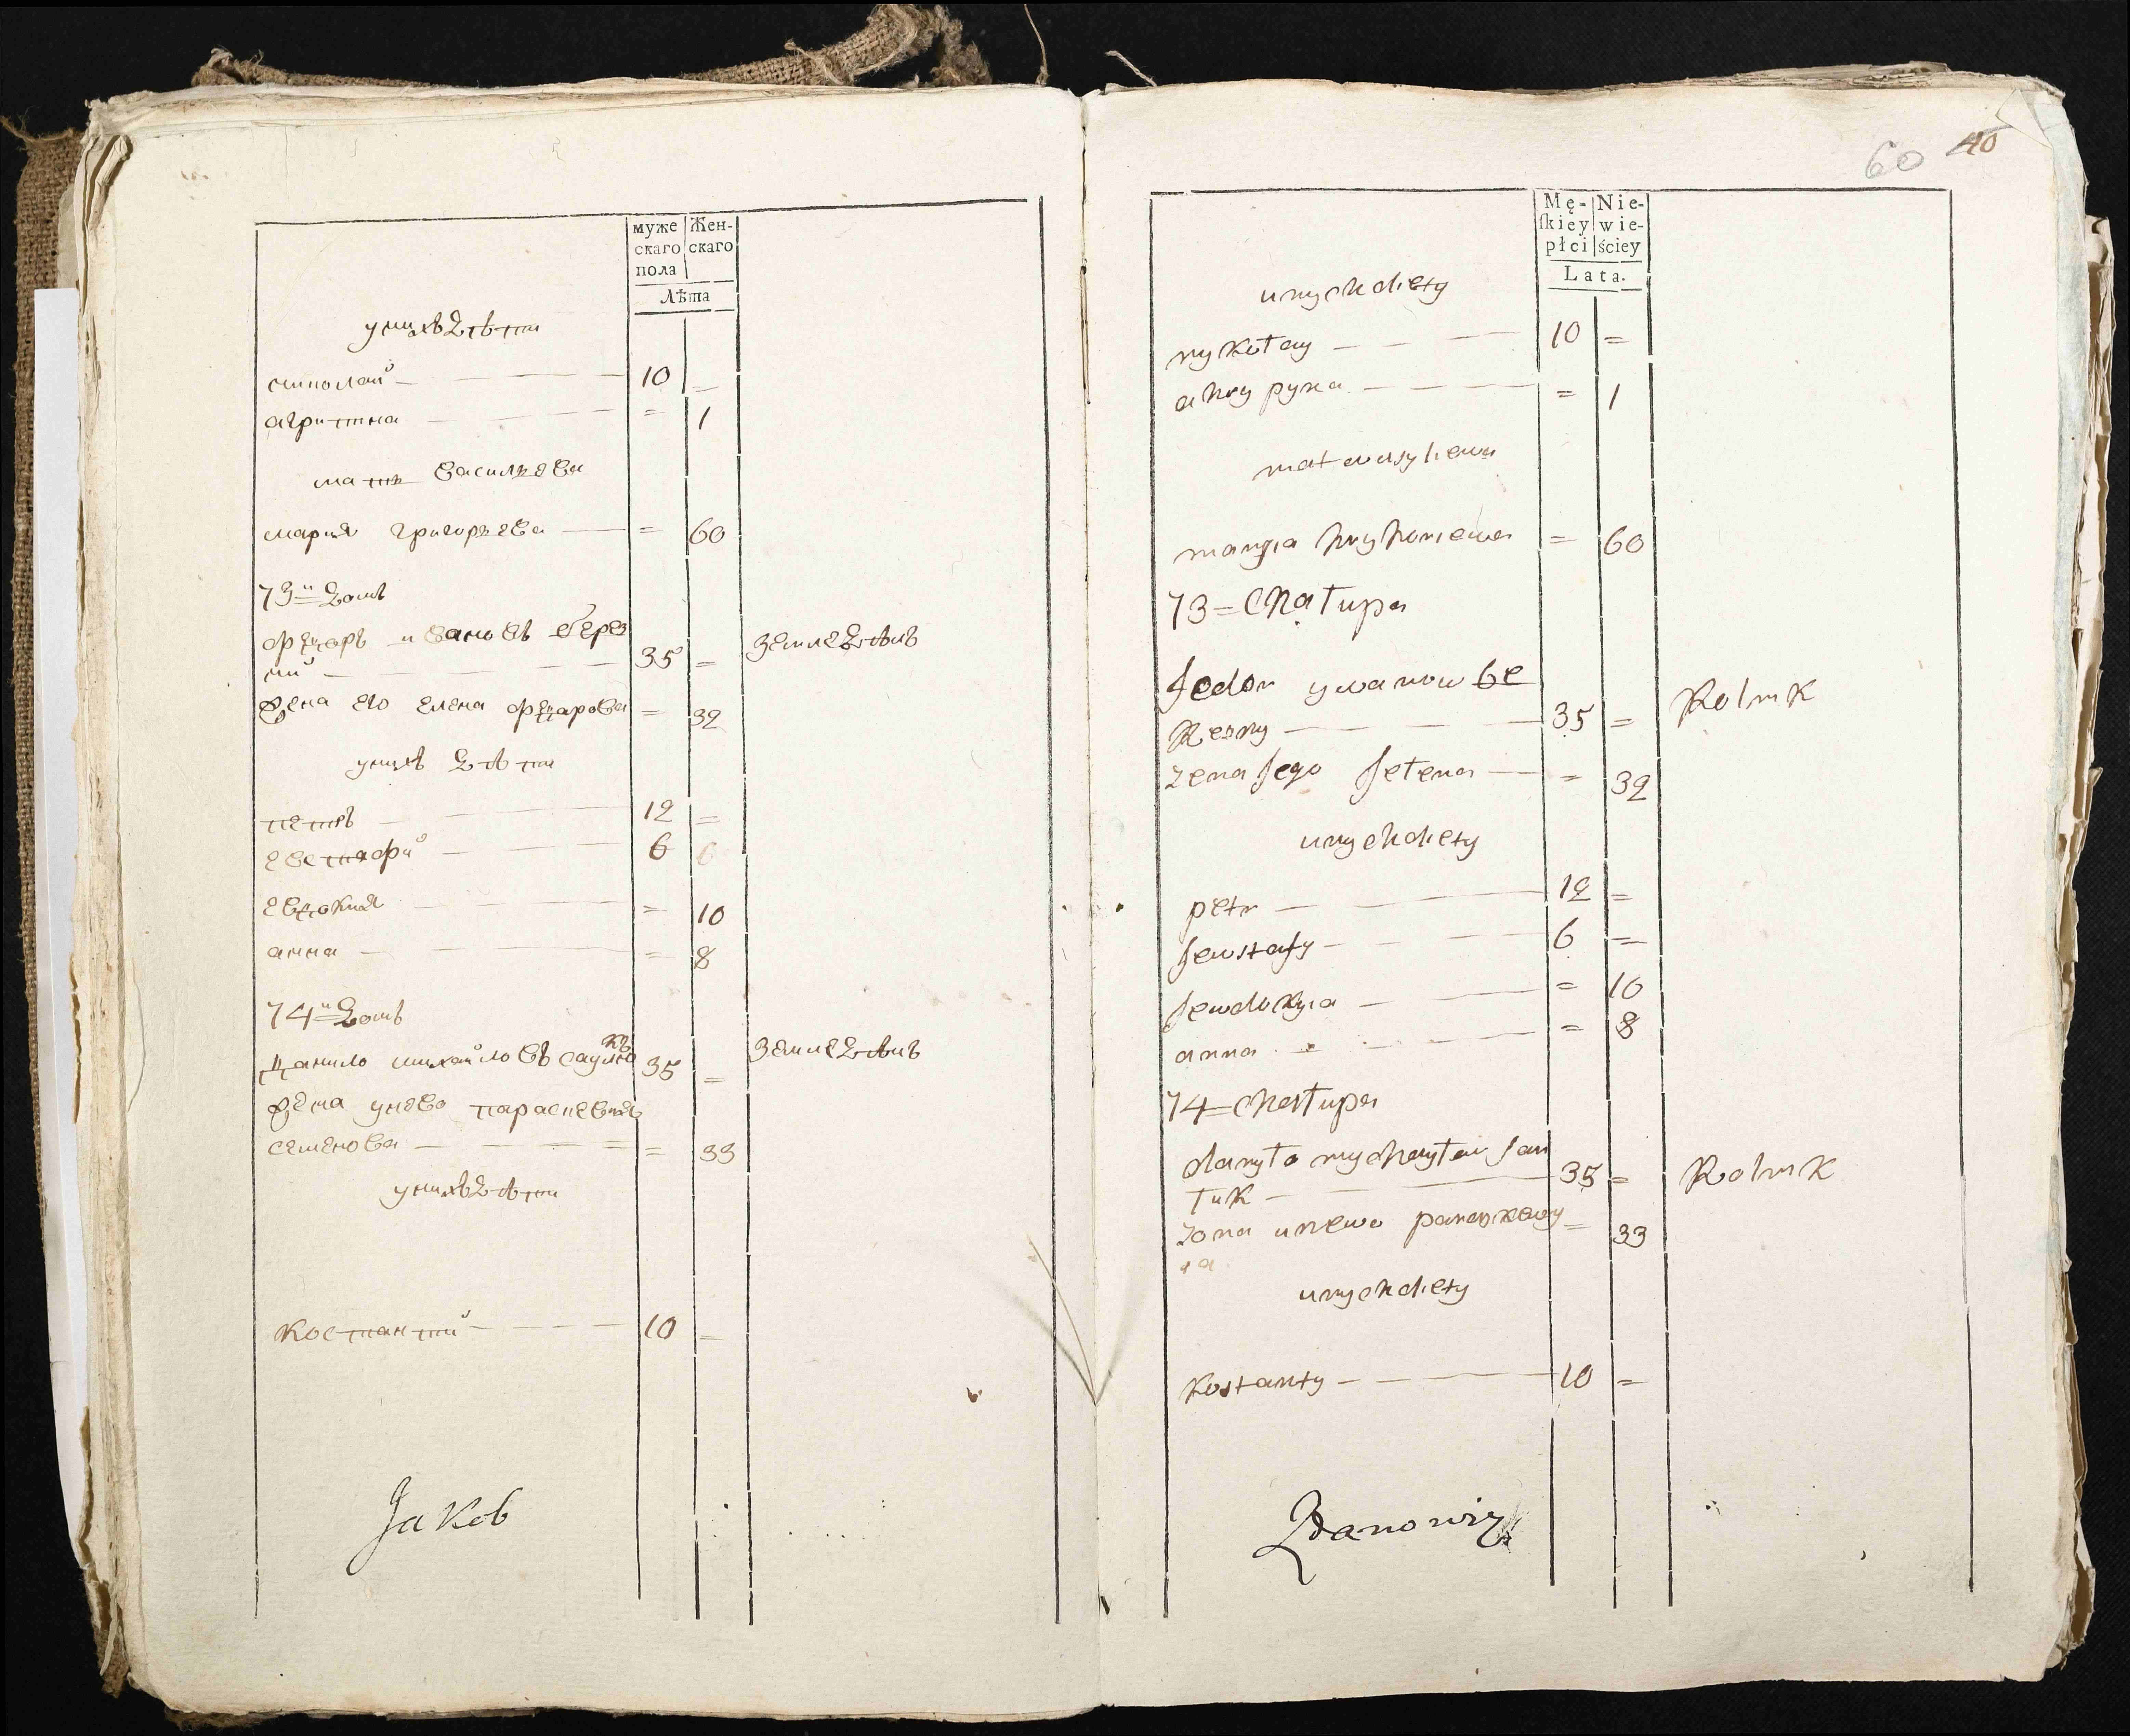 муже
скаго
пола
Жен-
скаго
Лѣта
у нихъ дѣти
николай 10 =
агрипина = 1
мать васильева
мария григорьева = 60
73й домъ
фѣдоръ ивановъ берез
ни 35 = земледѣлъ
жена его елена фѣдорова = 32
у нихъ дѣти
петръ 12 =
евстафй 6 6
евдокия = 10
анна = 8
74й домъ
данило михайловъ саулю
къ 35 = земледѣлъ
жена у нево параскевия
семенова = 33
у нихъ дѣти
костантй 10 =
Jakob
60 40
Mę-
skiey
płci
Nie-
wie-
ściey
Lata.
u nych diety
nykołay 10 =
ahrypyna = 1
mat wasylewa
maryia hryhoriewa = 60
73 = Chałupa
Jedor ywanow be
Rezny 35 = Rolnik
zena Jego Jełena = 32
u nych diety
petr 12 =
Jewstafy 6 =
Jewdokyia = 10
anna = 8
74 = Chałupa
danyło mychayłow sau
łuk 35 = Rolnik
zona u newo paraskewy
ia = 33
u nych diety
kostanty 10 =
Zdanowicz